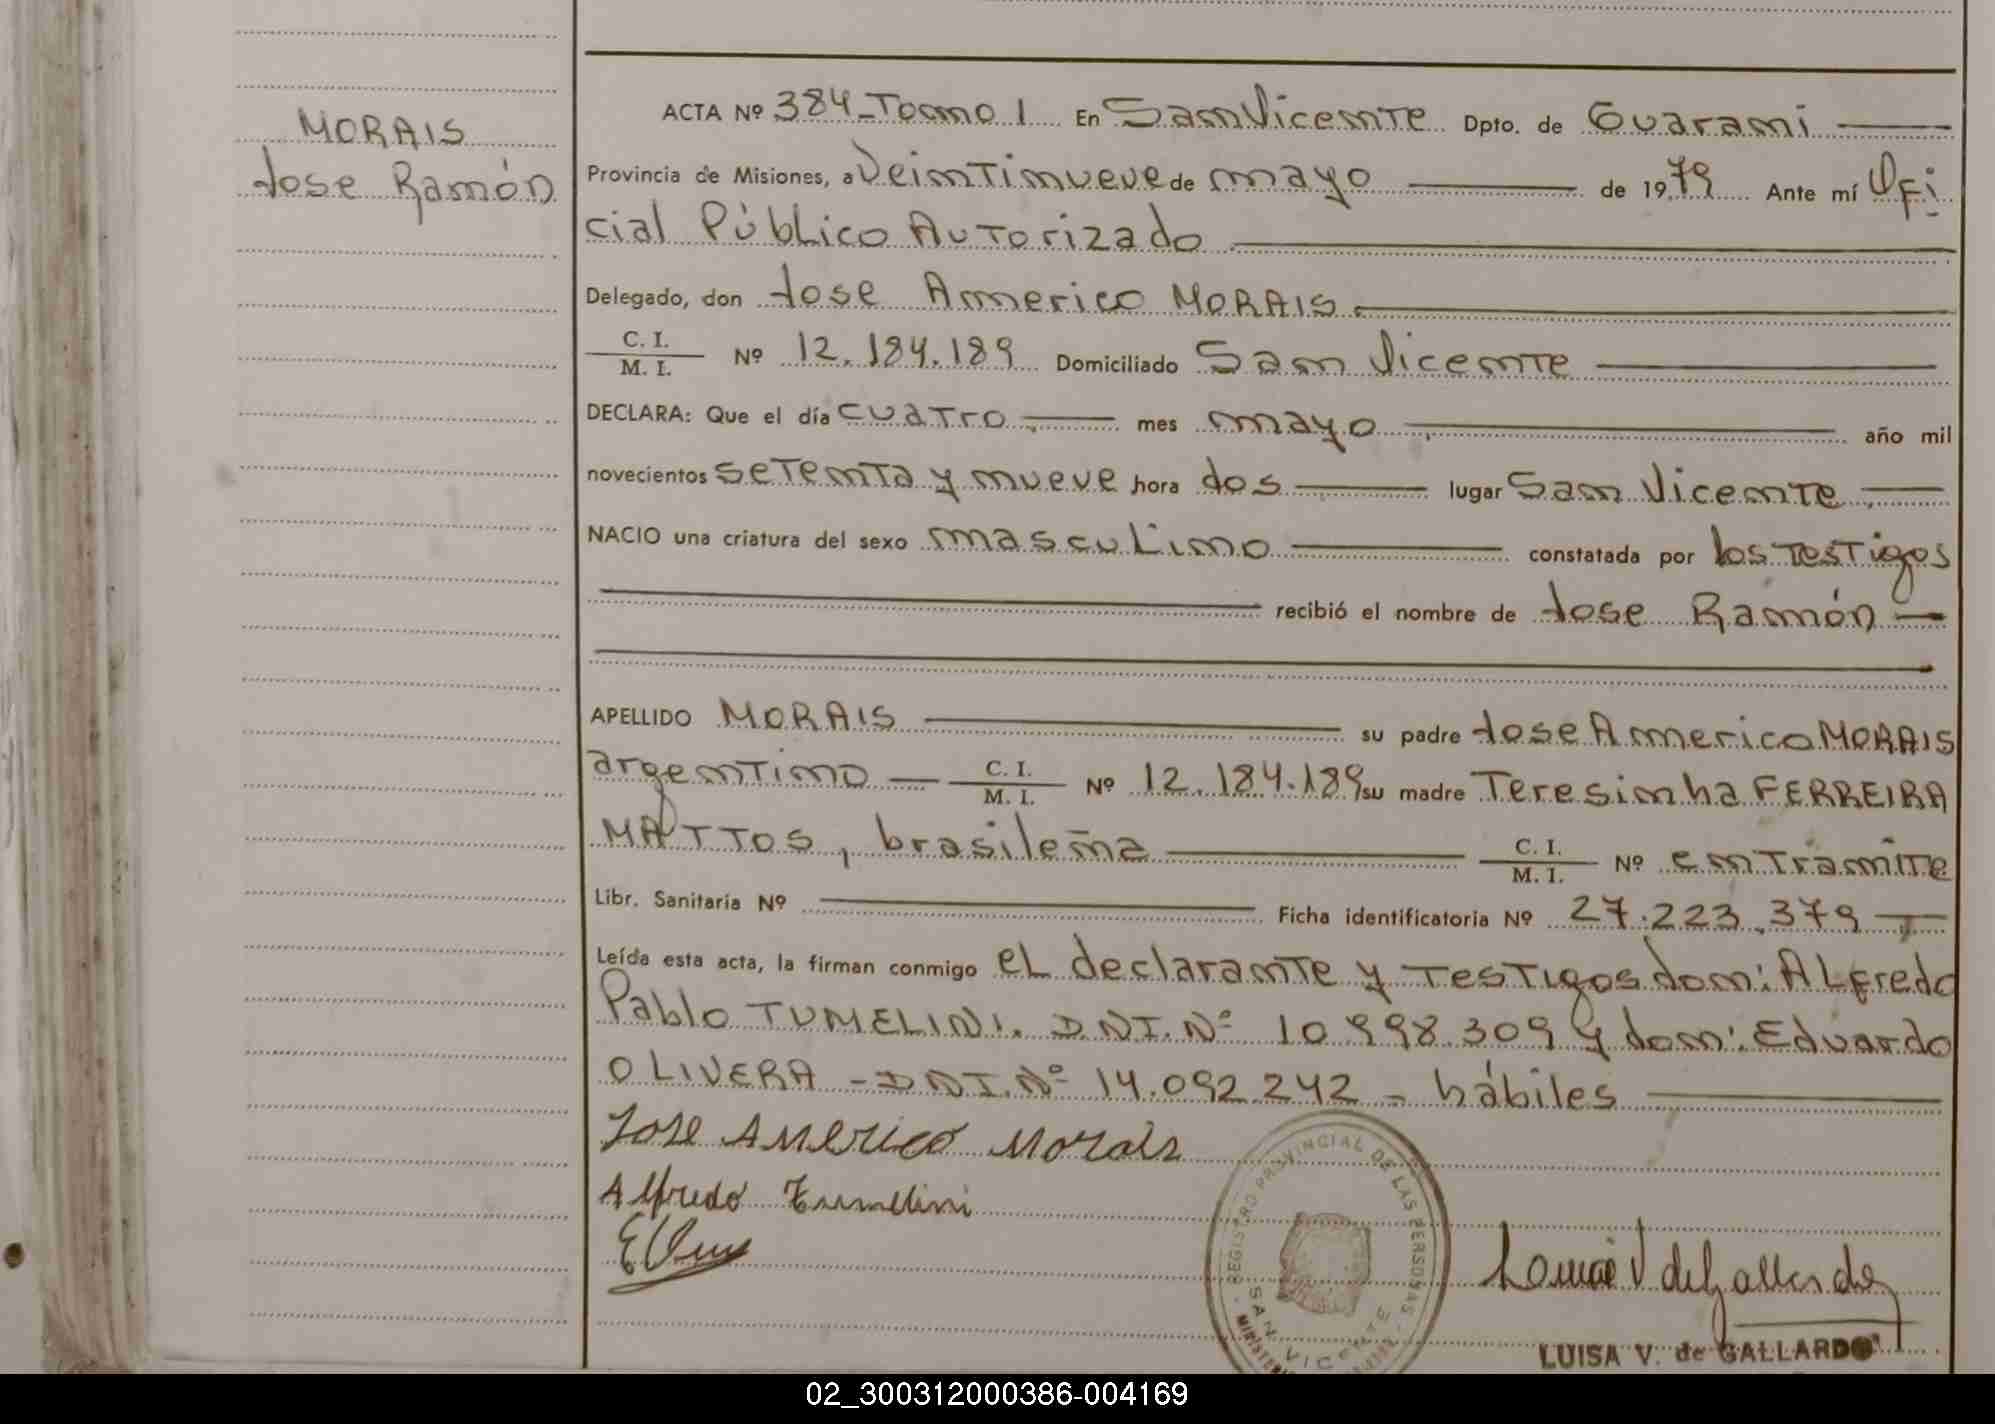 MORAIS
Jose Ramón
ACTA Nº 384_Tomo I En San Vicente Dpto. de Guarani
Provincia de Misiones, a Veintinueve de mayo de 1979 Ante mí Ofi
cial Público Autorizado
Delegado, don Jose Americo MORAIS
C. I.
M. I. Nº 12.184.189 Domiciliado San Vicente
DECLARA: Que el día cuatro mes mayo año mil
novecientos setenta y nueve hora dos lugar San Vicente
NACIO una criatura del sexo masculino constatada por los testigos
recibió el nombre de Jose Ramón
APELLIDO MORAIS su padre Jose Americo MORAIS
argentino C. I. M. I. Nº 12.184.189 su madre Teresinha FERREIRA
MATTOS, brasileña C. I. M. I. Nº en tramite
Libr. Sanitaria Nº Ficha identificatoria Nº 27.223.379
Leída esta acta, la firman conmigo el declarante y testigos don: Alfredo
Pablo TUMELINI. D.N.I. Nº 10.998.309 y don: Eduardo
OLIVERA - DNI. Nº 14.092.242 - hábiles
Jose Americo Morais
Alfredo Tumelini
REGISTRO PROVINCIAL DE LAS PERSONAS
SAN VICENTE
LUISA V. de GALLARDO
02_300312000386-004169